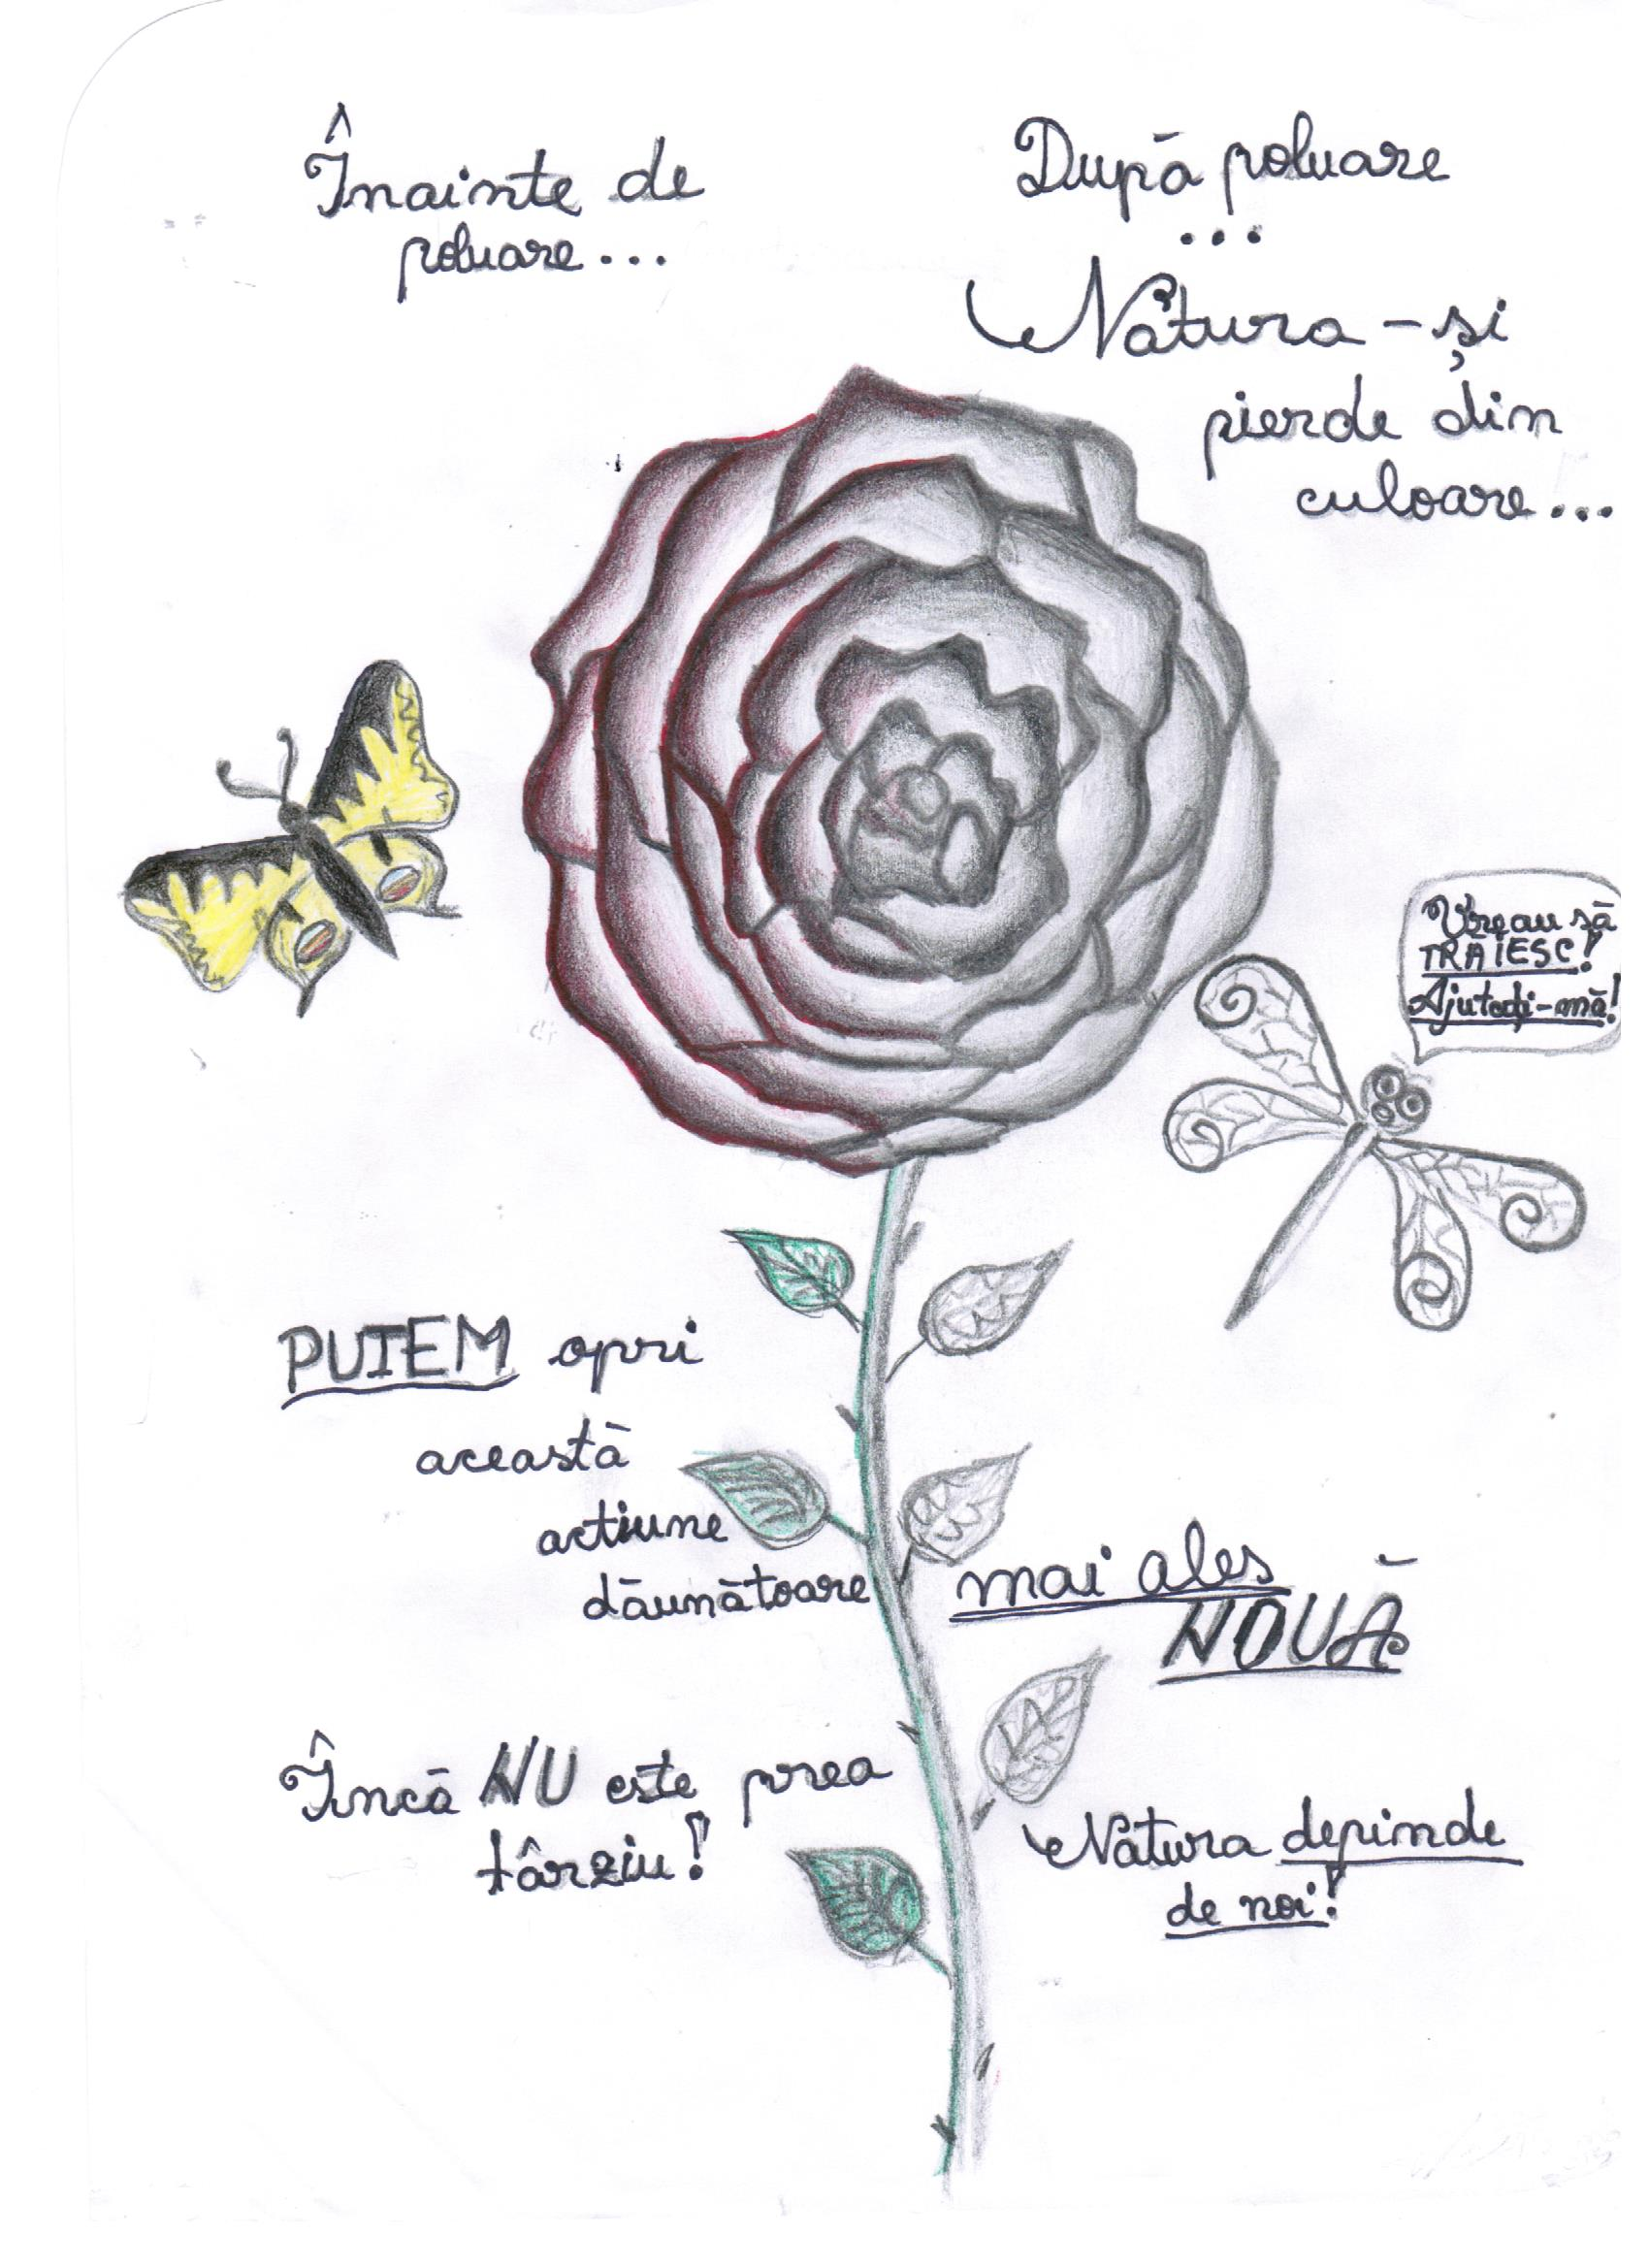 Înainte de
poluare...
După poluare
...
Natura-și
pierde din
culoare...
Vreau să
TRĂIESC!
Ajutați-mă!
PUTEM opri
această
acțiune
dăunătoare
mai ales
NOUĂ
Încă NU este prea
târziu!
Natura depinde
de noi!